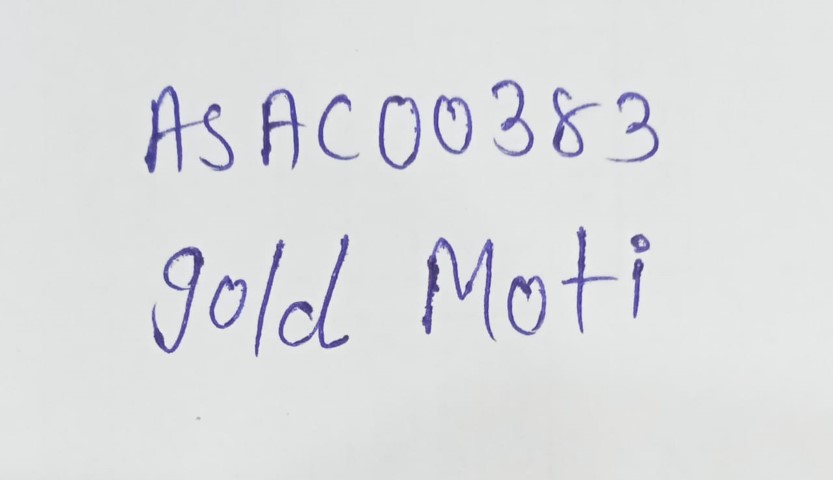 ASAC00383
gold Moti